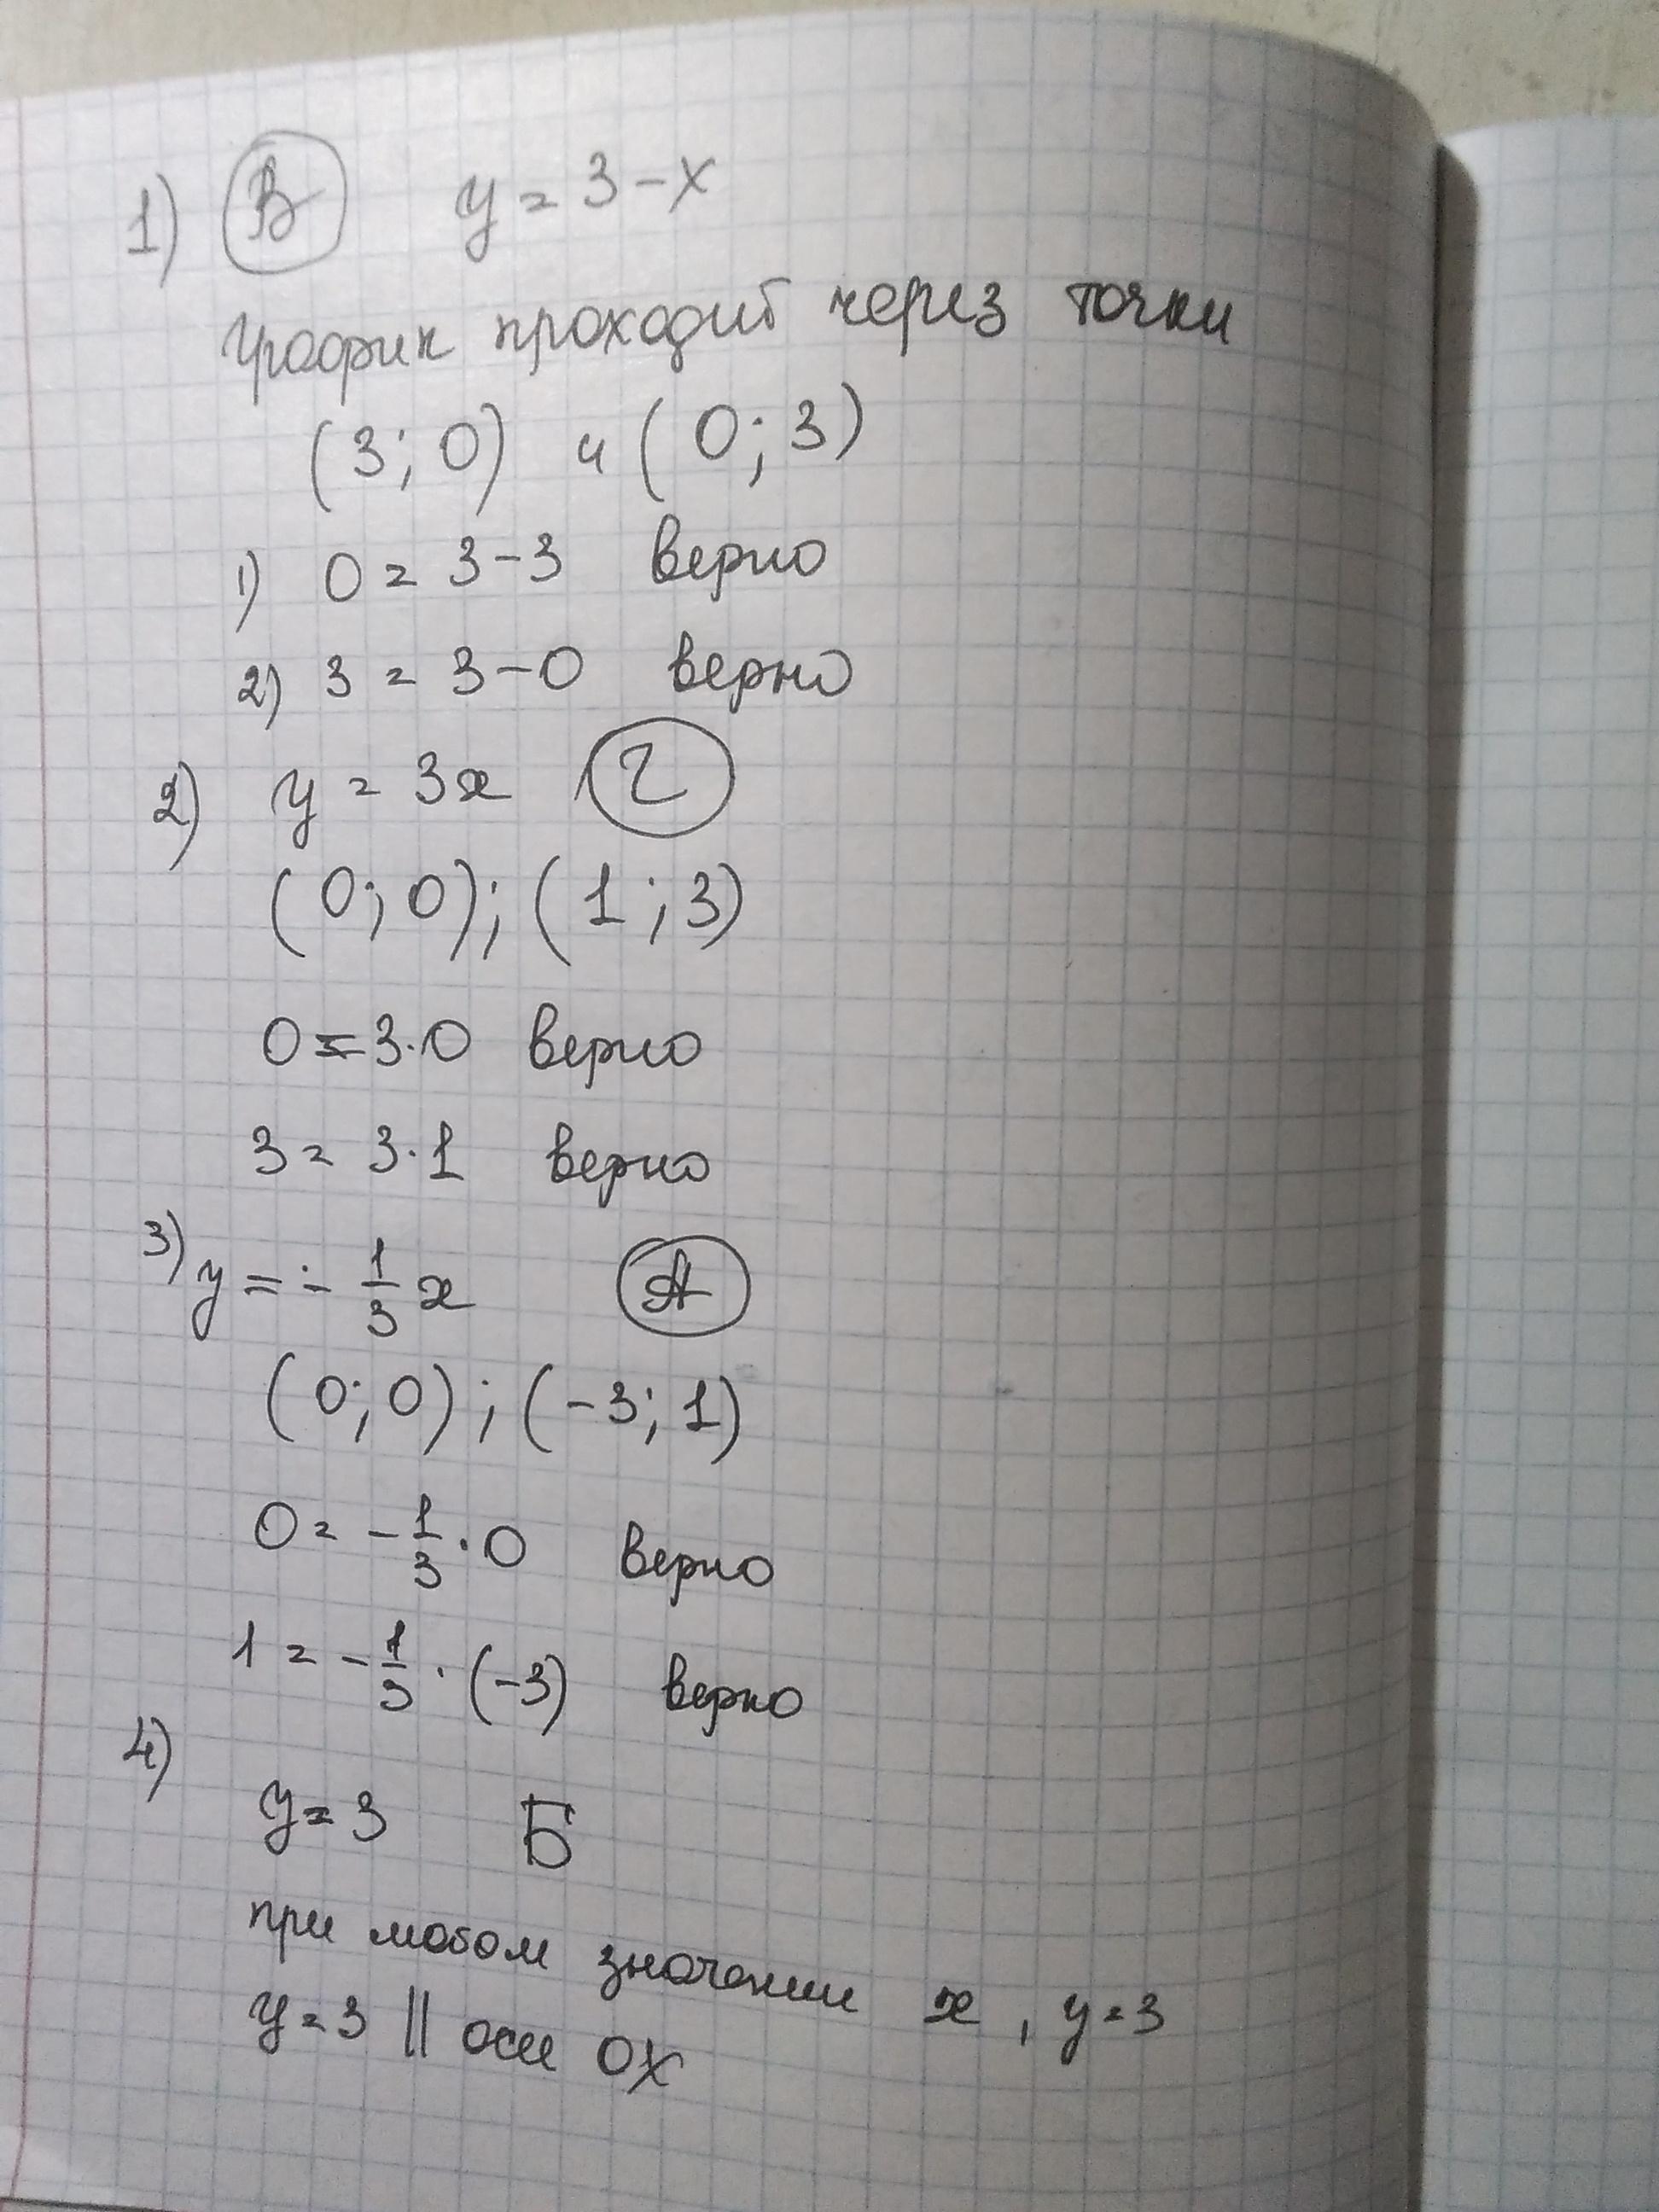 1) В y = 3 - x
график проходит через точки
(3; 0) и (0; 3)
1) 0 = 3 - 3 верно
2) 3 = 3 - 0 верно
2) y = 3x Г
(0; 0); (1; 3)
0 = 3·0 верно
3 = 3·1 верно
3) y = - 1/3 x А
(0; 0); (-3; 1)
0 = - 1/3 · 0 верно
1 = - 1/3 · (-3) верно
4)
y = 3 Б
при любом значении x, y = 3
y = 3 || оси OX